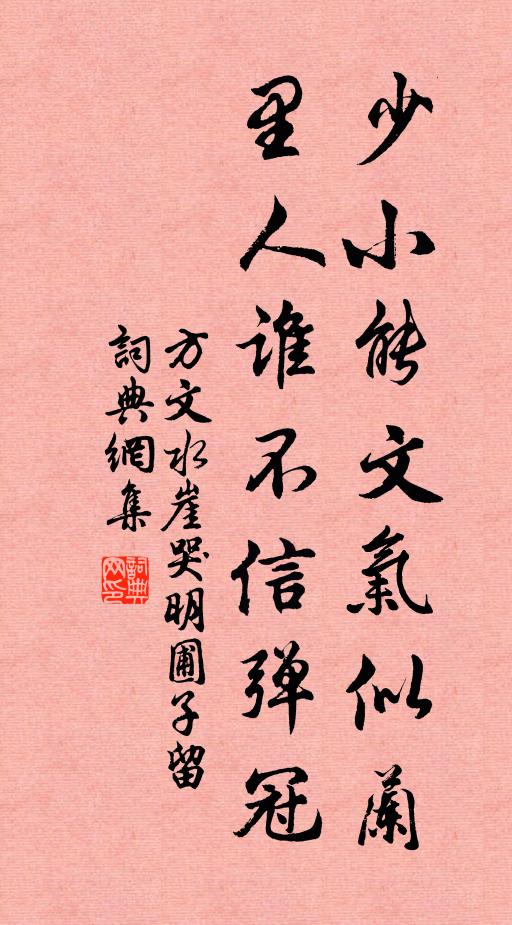 少小能文氣似蘭
里人誰不信彈冠
方文水崖哭明圃子留
詞典網集
詞典网印